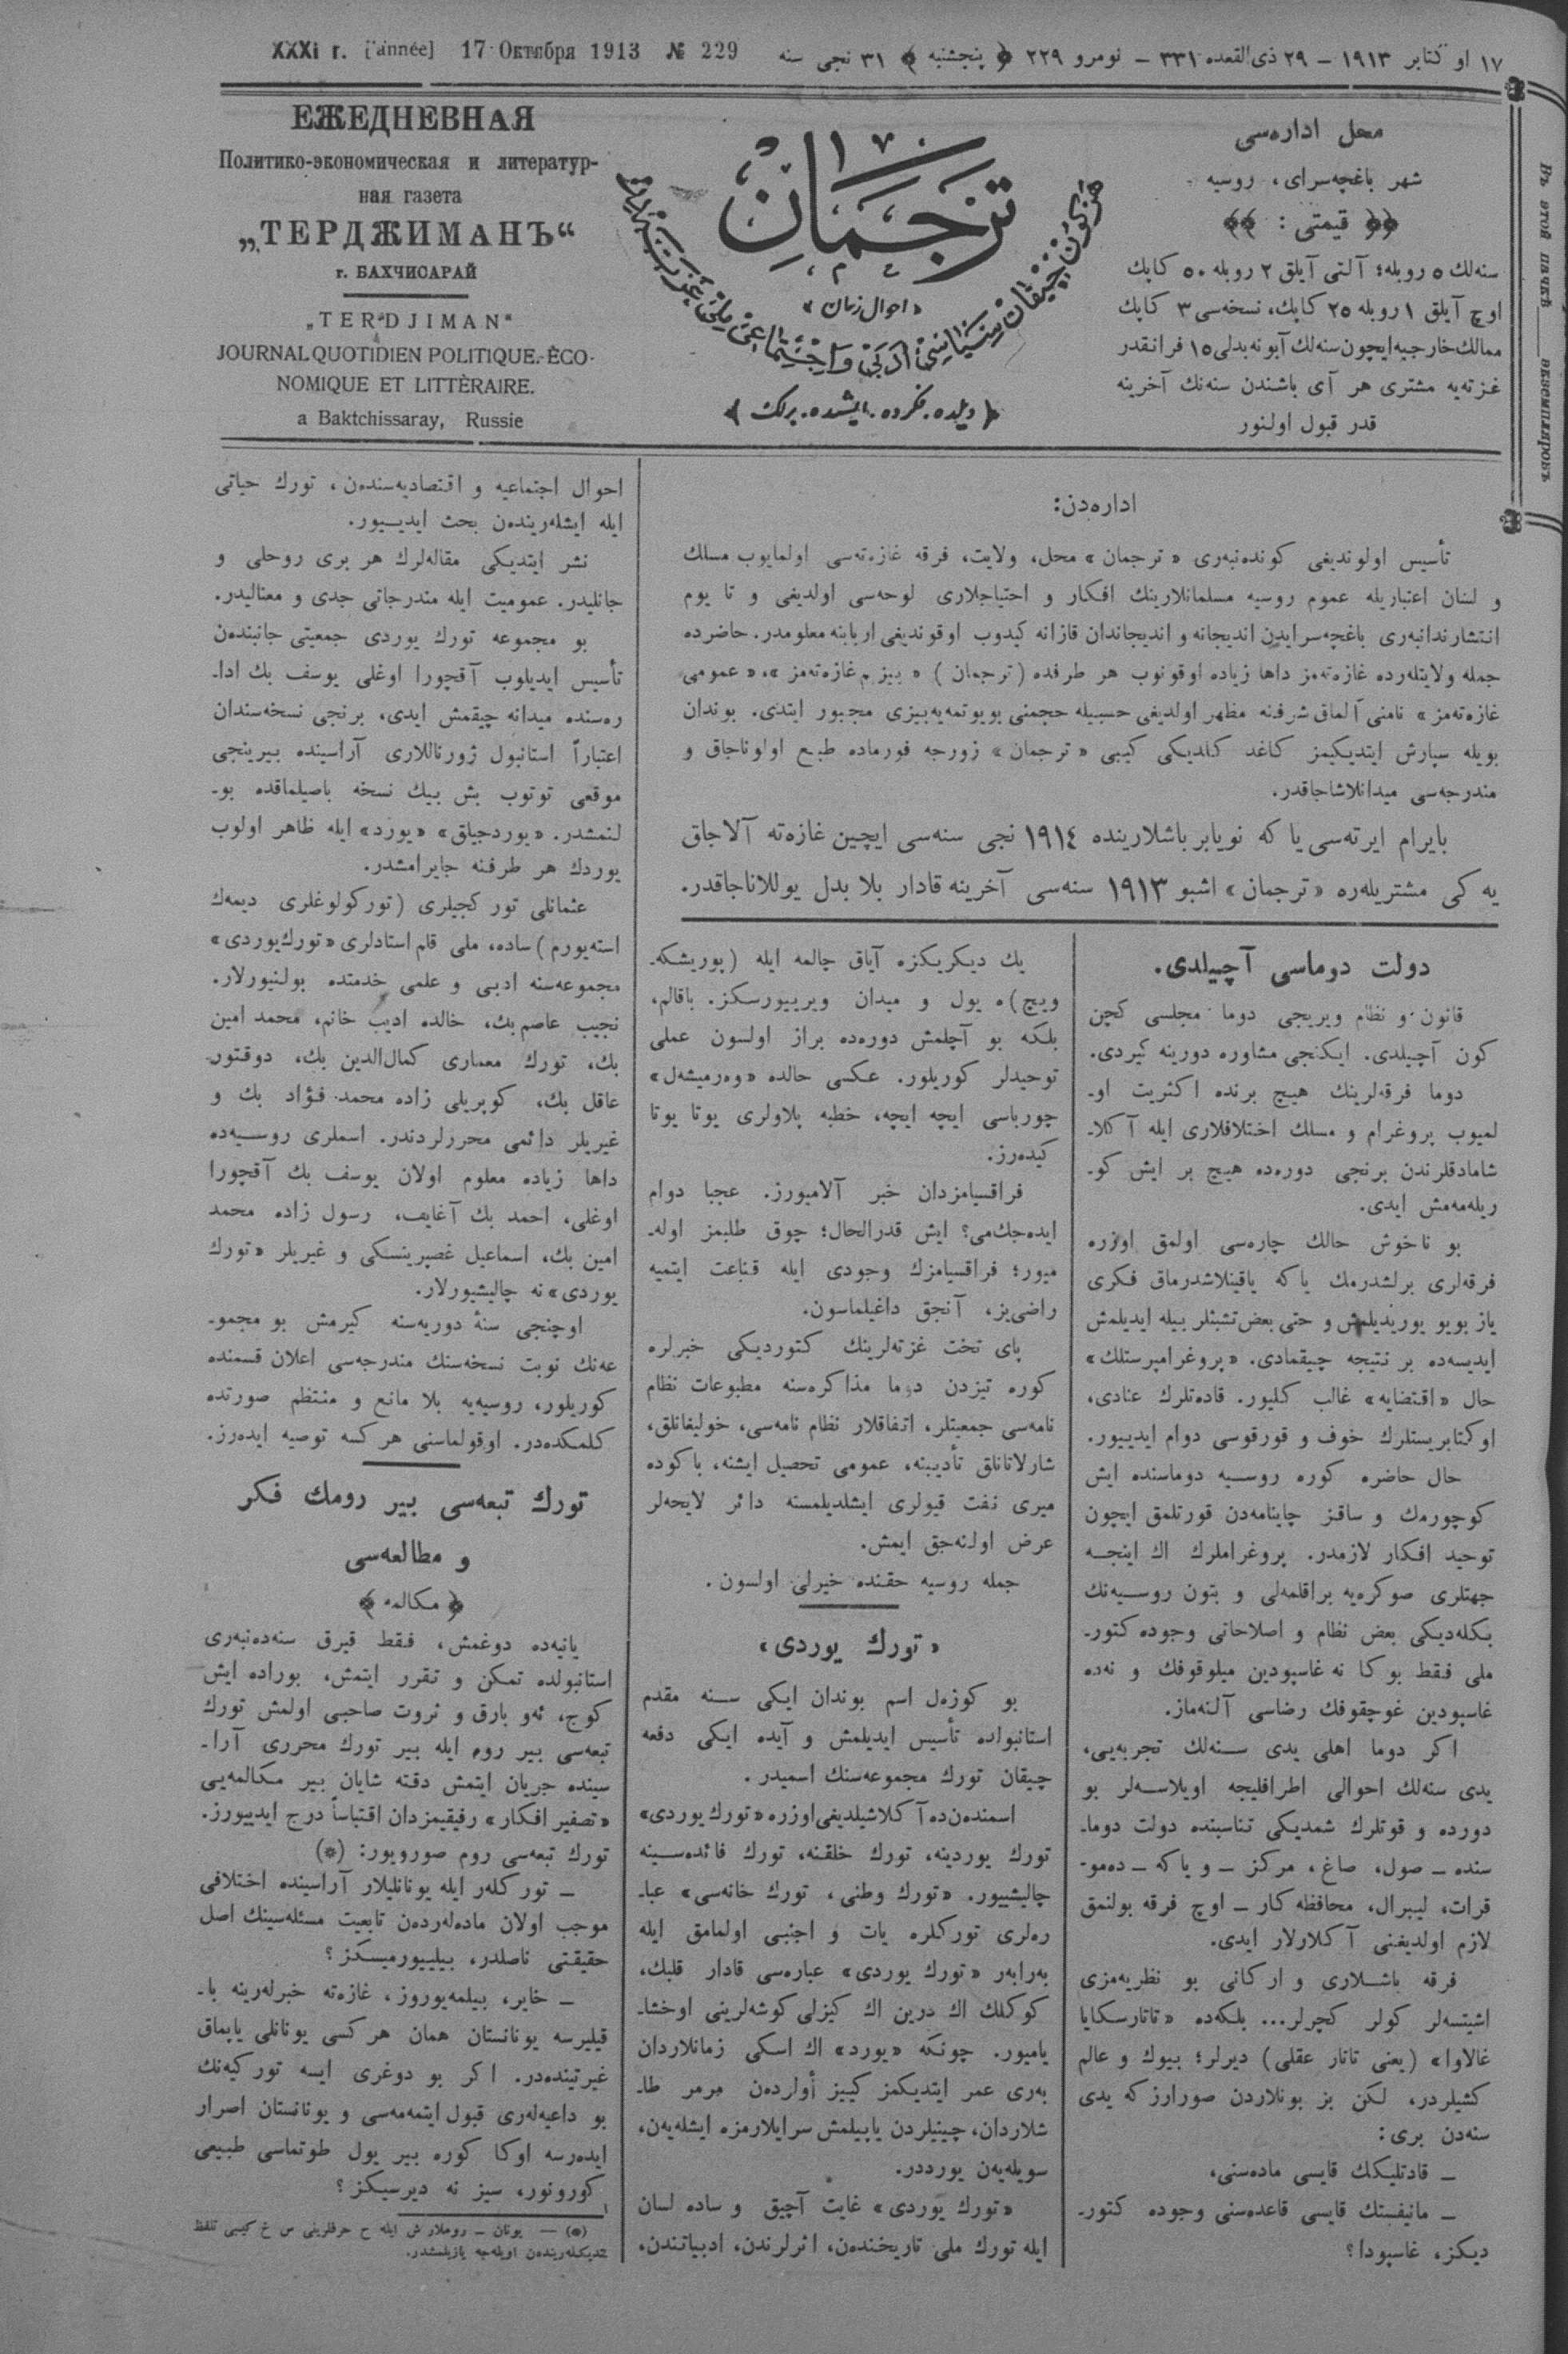 XXXI г. [année] 17 Октября 1913 № 229
١٧ اوكتابر ١٩١٣ – ٢٩ ذی‌القعده ٣٣١ – نومرو ٢٢٩ ﴿ پنجشنبه ﴾ ٣١ نجی سنه
ЕЖЕДНЕВНАЯ
Политико-экономическая и литератур-
ная газета
„ТЕРДЖИМАНЪ“
г. БАХЧИСАРАЙ
„TERDJIMAN“
JOURNAL QUOTIDIEN POLITIQUE.-ÈCO-
NOMIQUE ET LITTÈRAIRE.
a Baktchissaray, Russie
ترجمان
« احوال زمان »
﴿ دیلده . فكرده . ایشده . برلك ﴾
محل اداره‌سی
شهر باغچه‌سرای، روسیه
﴿﴿ قیمتی : ﴾﴾
سنه‌لك ٥ روبله؛ آلتی آیلق ٢ روبله ٥٠ كاپك
اوچ آیلق ١ روبله ٢٥ كاپك، نسخه‌سی ٣ كاپك
ممالك خارجیه ایچون سنه‌لك آبونه بدلی ١٥ فرانقدر
غزته‌یه مشتری هر آی باشندن سنه‌نك آخرینه
قدر قبول اولنور
Въ этой пачкѣ ____ экземпляровъ
اداره‌دن:
تأسیس اولوندیغی كونده‌نبه‌ری «ترجمان» محل، ولایت، فرقه غازه‌ته‌سی اولمایوب مسلك
و لسان اعتباریله عموم روسیه مسلمانلارینك افكار و احتیاجلاری لوحه‌سی اولدیغی و تا یوم
انتشارندانبه‌ری باغچه‌سرایدن اندیجانه و اندیجاندان قازانه كیدوب اوقوندیغی اربابنه معلومدر. حاضرده
جمله ولایتله‌رده غازه‌ته‌مز داها زیاده اوقونوب هر طرفده (ترجمان) «بیزم غازه‌ته‌مز»، «عمومی
غازه‌ته‌مز» نامنی آلماق شرفنه مظهر اولدیغی حسبیله حجمنی بویوتمه‌یه بیزی مجبور ایتدی. بوندان
بویله سپارش ایتدیكیمز كاغد كلدیكی كیبی «ترجمان» زورجه فورماده طبع اولوناجاق و
مندرجه‌سی میدانلاشاجاقدر.
بایرام ایرته‌سی یا كه نویابر باشلارینده ١٩١٤ نجی سنه‌سی ایچین غازه‌ته آلاجاق
یه كی مشتریله‌ره «ترجمان» اشبو ١٩١٣ سنه‌سی آخرینه قادار بلا بدل یوللاناجاقدر.
دولت دوماسی آچیلدی.
قانون و نظام ویریجی دوما مجلسی كچن
كون آچیلدی. ایكنجی مشاوره دورینه كیردی.
دوما فرقه‌لرینك هیچ برنده اكثریت او-
لمیوب پروغرام و مسلك اختلافلاری ایله آكلا-
شامادقلرندن برنجی دوره‌ده هیچ بر ایش كو-
ریله‌مه‌مش ایدی.
بو ناخوش حالك چاره‌سی اولمق اوزره
فرقه‌لری برلشدرمك یا كه یاقینلاشدرماق فكری
یاز بویو یوریدیلمش و حتی بعض تشبثلر بیله ایدیلمش
ایدیسه‌ده بر نتیجه چیقمادی. «پروغرامپرستلك»
حال «اقتضایه» غالب كلیور. قادەتلرك عنادی،
اوكتابریستلرك خوف و قورقوسی دوام ایدییور.
حال حاضره كوره روسیه دوماسنده ایش
كوچورمك و ساقز چاینامه‌دن قورتلمق ایچون
توحید افكار لازمدر. پروغراملرك اك اینجه
جهتلری صوكره‌یه براقلمه‌لی و بتون روسیه‌نك
بكله‌دیكی بعض نظام و اصلاحاتی وجوده كتور-
ملی فقط بوكا نه غاسپودین میلوقوفك و نه‌ده
غاسپودین غوچقوفك رضاسی آلنه‌ماز.
اكر دوما اهلی یدی سنه‌لك تجربه‌یی،
یدی سنه‌لك احوالی اطرافلیجه اویلاسه‌لر بو
دورده و قوتلرك شمدیكی تناسبنده دولت دوما-
سنده – صول، صاغ، مركز – و یاكه – ده‌مو-
قرات، لیبرال، محافظه كار – اوچ فرقه بولنمق
لازم اولدیغنی آكلارلار ایدی.
فرقه باشلاری و اركانی بو نظریه‌مزی
اشیتسه‌لر كولر كچرلر... بلكه‌ده «تاتارسكایا
غالاوا» (یعنی تاتار عقلی) دیرلر؛ بیوك و عالم
كشیلردر، لكن بز بونلاردن صورارز كه یدی
سنه‌دن بری:
– قادتلیكك قایسی ماده‌سنی،
– مانیفستك قایسی قاعده‌سنی وجوده كتور-
دیكز، غاسپودا؟
یك دیكریكزه آیاق چالمه ایله (پوریشكه-
ویچ)ه یول و میدان ویرییورسكز. باقالم،
بلكه بو آچلمش دوره‌ده براز اولسون عملی
توحیدلر كوریلور. عكسی حالده «وەرمیشەل»
چورباسی ایچه ایچه، خطبه پلاولری یوتا یوتا
كیده‌رز.
فراقسیامزدان خبر آلامیورز. عجبا دوام
ایده‌جك‌می؟ ایش قدرالحال؛ چوق طلبمز اوله-
میور؛ فراقسیامزك وجودی ایله قناعت ایتمیه
راضی‌یز، آنجق داغیلماسون.
پای تخت غزته‌لرینك كتوردیكی خبرلره
كوره تیزدن دوما مذاكره‌سنه مطبوعات نظام
نامه‌سی جمعیتلر، اتفاقلار نظام نامه‌سی، خولیغانلق،
شارلاتانلق تأدیبنه، عمومی تحصیل ایشنه، باكوده
میری نفت قیولری ایشلدیلمسنه دائر لایحه‌لر
عرض اولنه‌جق ایمش.
جمله روسیه حقنده خیرلی اولسون.
«تورك یوردی»
بو كوزه‌ل اسم بوندان ایكی سنه مقدم
استانبولده تأسیس ایدیلمش و آیده ایكی دفعه
چیقان تورك مجموعه‌سنك اسمیدر.
اسمندەن‌ده آكلاشیلدیغی اوزره «تورك یوردی»
تورك یوردینه، تورك خلقنه، تورك فائده‌سینه
چالیشییور. «تورك وطنی، تورك خانه‌سی» عبا-
ره‌لری توركلره یات و اجنبی اولمامق ایله
به‌رابه‌ر «تورك یوردی» عباره‌سی قادار قلبك،
كوكلك اك درین اك كیزلی كوشه‌لرینی اوخشا-
یامیور. چونكه «یورد» اك اسكی زمانلاردان
به‌ری عمر ایتدیكمز كییز أولردەن مرمر طا-
شلاردان، چینیلردن یاپیلمش سرایلارمزه ایشله‌یه‌ن،
سویله‌یه‌ن یورددر.
«تورك یوردی» غایت آچیق و ساده لسان
ایله تورك ملی تاریخندەن، اثرلرندن، ادبیاتندن،
احوال اجتماعیه و اقتصادیه‌سندەن، تورك حیاتی
ایله ایشله‌ریندەن بحث ایدییور.
نشر ایتدیكی مقاله‌لرك هر بری روحلی و
جانلیدر. عمومیت ایله مندرجاتی جدی و معنالیدر.
بو مجموعه تورك یوردی جمعیتی جانبندەن
تأسیس ایدیلوب آقچورا اوغلی یوسف بك ادا-
ره‌سنده میدانه چیقمش ایدی، برنجی نسخه‌سندان
اعتباراً استانبول ژورناللاری آراسینده بیرینجی
موقعی توتوب بش بیك نسخه باصیلماقده بو-
لنمشدر. «یوردجیلق» «یورد» ایله ظاهر اولوب
یوردك هر طرفنه جایرامشدر.
عثمانلی توركجیلری (توركولوغلری دیمەك
استه‌یورم) ساده، ملی قلم استادلری «تورك یوردی»
مجموعه‌سنه ادبی و علمی خدمتده بولنیورلار.
نجیب عاصم بك، خالده ادیب خانم، محمد امین
بك، تورك معماری كمال‌الدین بك، دوقتور
عاقل بك، كوپریلی زاده محمد فؤاد بك و
غیریلر دائمی محررلردندر. اسملری روسیه‌ده
داها زیاده معلوم اولان یوسف بك آقچورا
اوغلی، احمد بك آغایف، رسول زاده محمد
امین بك، اسماعیل غصپرینسكی و غیریلر «تورك
یوردی» نه چالیشیورلار.
اوچنجی سنهٔ دوریه‌سنه كیرمش بو مجمو-
عه‌نك نوبت نسخه‌سنك مندرجه‌سی اعلان قسمنده
كوریلور، روسیه‌یه بلا مانع و منتظم صورتده
كلمكده‌در. اوقولماسنی هر كسه توصیه ایده‌رز.
تورك تبعه‌سی بیر رومك فكر
و مطالعه‌سی
﴿ مكالمه ﴾
یانیه‌ده دوغمش، فقط قیرق سنه‌ده‌نبه‌ری
استانبولده تمكن و تقرر ایتمش، بوراده ایش
كوج، ئه‌و بارق و ثروت صاحبی اولمش تورك
تبعه‌سی بیر روم ایله بیر تورك محرری آرا-
سینده جریان ایتمش دقته شایان بیر مكالمه‌یی
«تصفیر افكار» رفیقیمزدان اقتباساً درج ایدییورز.
تورك تبعه‌سی روم صورویور: (*)
– توركلەر ایله یونانلیلار آراسینده اختلافی
موجب اولان ماده‌لەردەن تابعیت مسئله‌سینك اصل
حقیقتی ناصلدر، بیلییورمیسكز؟
– خایر، بیلمه‌یوروز، غازه‌ته خبرله‌رینه با-
قیلیرسه یونانستان همان هر كسی یونانلی یاپماق
غیرتینده‌در. اكر بو دوغری ایسه توركیه‌نك
بو داعیه‌له‌ری قبول ایتمه‌مه‌سی و یونانستان اصرار
ایده‌رسه اوكا كوره بیر یول طوتماسی طبیعی
كورونور، سیز نه دیرسیكز؟
(*) – یونان – روملار ش ایله ح حرفلرینی س خ كیبی تلفظ
ایتدیكله‌ریندەن اویله‌جه یازیلمشدر.